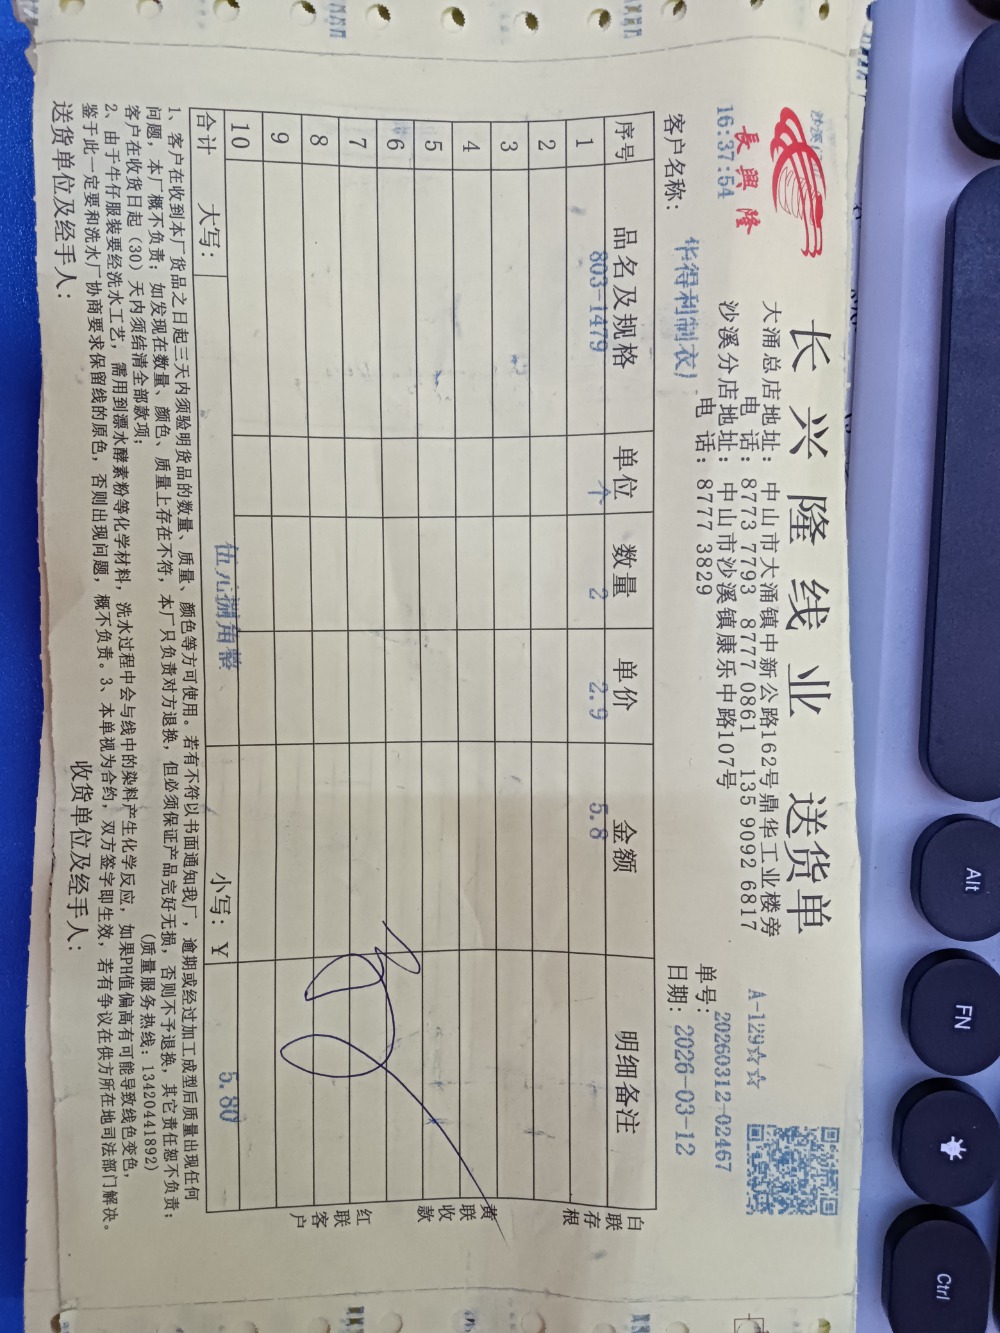 長興隆
16:37:54
长兴隆线业 送货单
大涌总店地址：中山市大涌镇中新公路162号鼎华工业楼旁
电 话：8773 7793 8777 0861 135 9092 6817
沙溪分店地址：中山市沙溪镇康乐中路107号
电 话：8777 3829
A-129☆☆
单号：20260312-02467
客户名称：华得利制衣厂
日期：2026-03-12
序号 品名及规格 单位 数量 单价 金额 明细备注
1 803-1479 个 2 2.9 5.8
2
3
4
5
6
7
8
9
10
合计 大写：伍元捌角整 小写：Y 5.80
白联存根
黄联收款
红联客户
1、客户在收到本厂货品之日起三天内须验明货品的数量、质量、颜色等方可使用。若有不符以书面通知我厂，逾期或经过加工成型后质量出现任何
问题，本厂概不负责；如发现在数量、颜色、质量上存在不符，本厂只负责对方退换，但必须保证产品完好无损，否则不予退换，其它责任恕不负责；
客户在收货日起（30）天内须结清全部款项； （质量服务热线：13420441892）
2、由于牛仔服装要经洗水工艺，需用到漂水酵素粉等化学材料，洗水过程中会与线中的染料产生化学反应，如果PH值偏高有可能导致线色变色，
鉴于此一定要和洗水厂协商要求保留线的原色，否则出现问题，概不负责。3、本单视为合约，双方签字即生效，若有争议在供方所在地司法部门解决。
送货单位及经手人： 收货单位及经手人：
Alt
FN
Ctrl